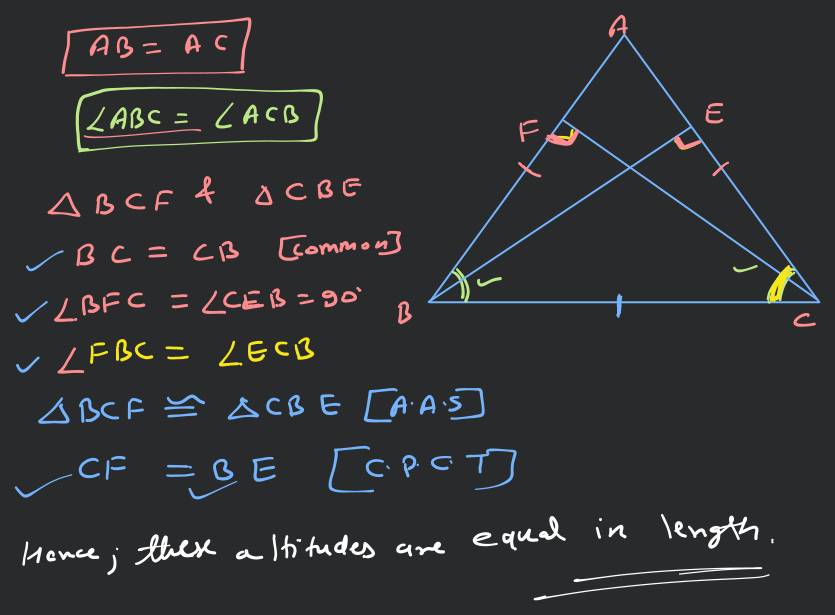 AB = AC
∠ABC = ∠ACB
△BCF & △CBE
BC = CB [common]
∠BFC = ∠CEB = 90°
∠FBC = ∠ECB
△BCF ≅ △CBE [A.A.S]
CF = BE [C.P.C.T]
Hence; these altitudes are equal in length.
A
F
E
B
C